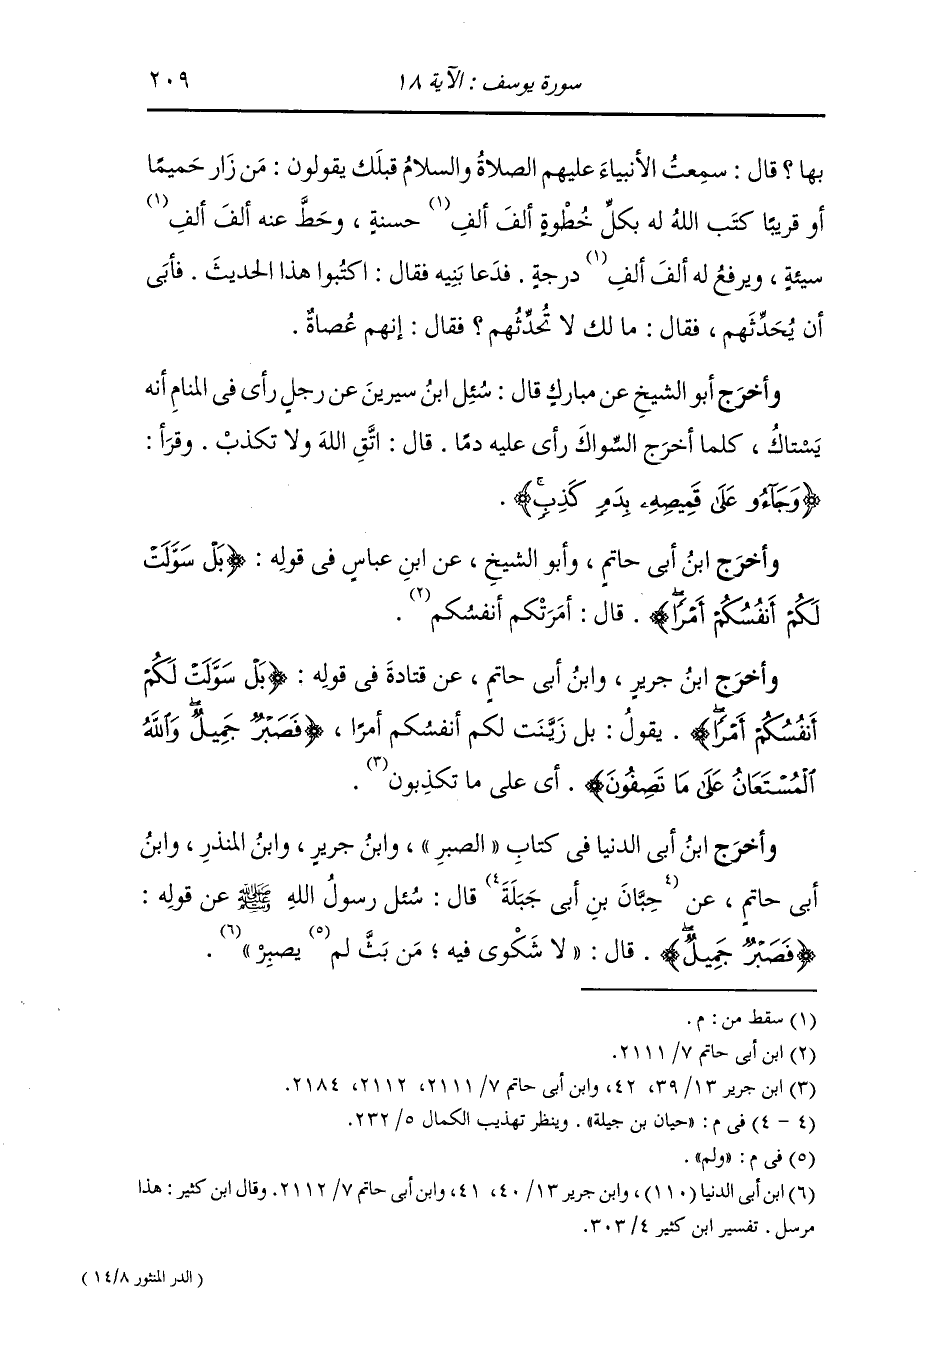 سورة يوسف : الآية ١٨
٢٠٩
بها ؟ قال : سمِعتُ الأنبياءَ عليهم الصلاةُ والسلامُ قبلَك يقولون : مَن زَار حَميمًا
أو قريبًا كتَب اللهُ له بكلِّ خُطْوةٍ ألفَ ألفِ(١) حسنةٍ ، وحَطَّ عنه ألفَ ألفِ(١)
سيئةٍ ، ويرفعُ له ألفَ ألفِ(١) درجةٍ . فدَعا بَنِيه فقال : اكتُبوا هذا الحديثَ . فأبَى
أن يُحَدِّثَهم ، فقال : ما لك لا تُحدِّثُهم ؟ فقال : إنهم عُصاةٌ .
وأخرَج أبو الشيخِ عن مباركٍ قال : سُئِل ابنُ سيرينَ عن رجلٍ رأى فى المنامِ أنه
يَسْتاكُ ، كلما أخرَج السِّواكَ رأى عليه دمًا . قال : اتَّقِ اللهَ ولا تكذبْ . وقرَأ :
﴿وَجَآءُو عَلَىٰ قَمِيصِهِۦ بِدَمٍ كَذِبٍۚ﴾ .
وأخرَج ابنُ أبى حاتمٍ ، وأبو الشيخِ ، عن ابنِ عباسٍ فى قولِه : ﴿بَلْ سَوَّلَتْ
لَكُمْ أَنفُسُكُمْ أَمْرًاۖ﴾ . قال : أمَرَتْكم أنفسُكم(٢) .
وأخرَج ابنُ جريرٍ ، وابنُ أبى حاتمٍ ، عن قتادةَ فى قولِه : ﴿بَلْ سَوَّلَتْ لَكُمْ
أَنفُسُكُمْ أَمْرًاۖ﴾ . يقولُ : بل زَيَّنَت لكم أنفسُكم أمرًا ، ﴿فَصَبْرٌ جَمِيلٌۖ وَٱللَّهُ
ٱلْمُسْتَعَانُ عَلَىٰ مَا تَصِفُونَ﴾ . أى على ما تكذِبون(٣) .
وأخرَج ابنُ أبى الدنيا فى كتابِ « الصبرِ » ، وابنُ جريرٍ ، وابنُ المنذرِ ، وابنُ
أبى حاتمٍ ، عن (٤حِبَّانَ بنِ أبى جَبَلَةَ٤) قال : سُئل رسولُ اللهِ ﷺ عن قولِه :
﴿فَصَبْرٌ جَمِيلٌۖ﴾ . قال : « لا شَكْوى فيه ؛ مَن بَثَّ لم(٥) يصبِرْ »(٦) .
(١) سقط من : م .
(٢) ابن أبى حاتم ٧/ ٢١١١.
(٣) ابن جرير ١٣/ ٣٩، ٤٢، وابن أبى حاتم ٧/ ٢١١١، ٢١١٢، ٢١٨٤.
(٤ - ٤) فى م : «حيان بن جيلة» . وينظر تهذيب الكمال ٥/ ٢٣٢.
(٥) فى م : «ولم» .
(٦) ابن أبى الدنيا (١١٠) ، وابن جرير ١٣/ ٤٠، ٤١، وابن أبى حاتم ٧/ ٢١١٢. وقال ابن كثير : هذا
مرسل . تفسير ابن كثير ٤/ ٣٠٣.
( الدر المنثور ١٤/٨ )